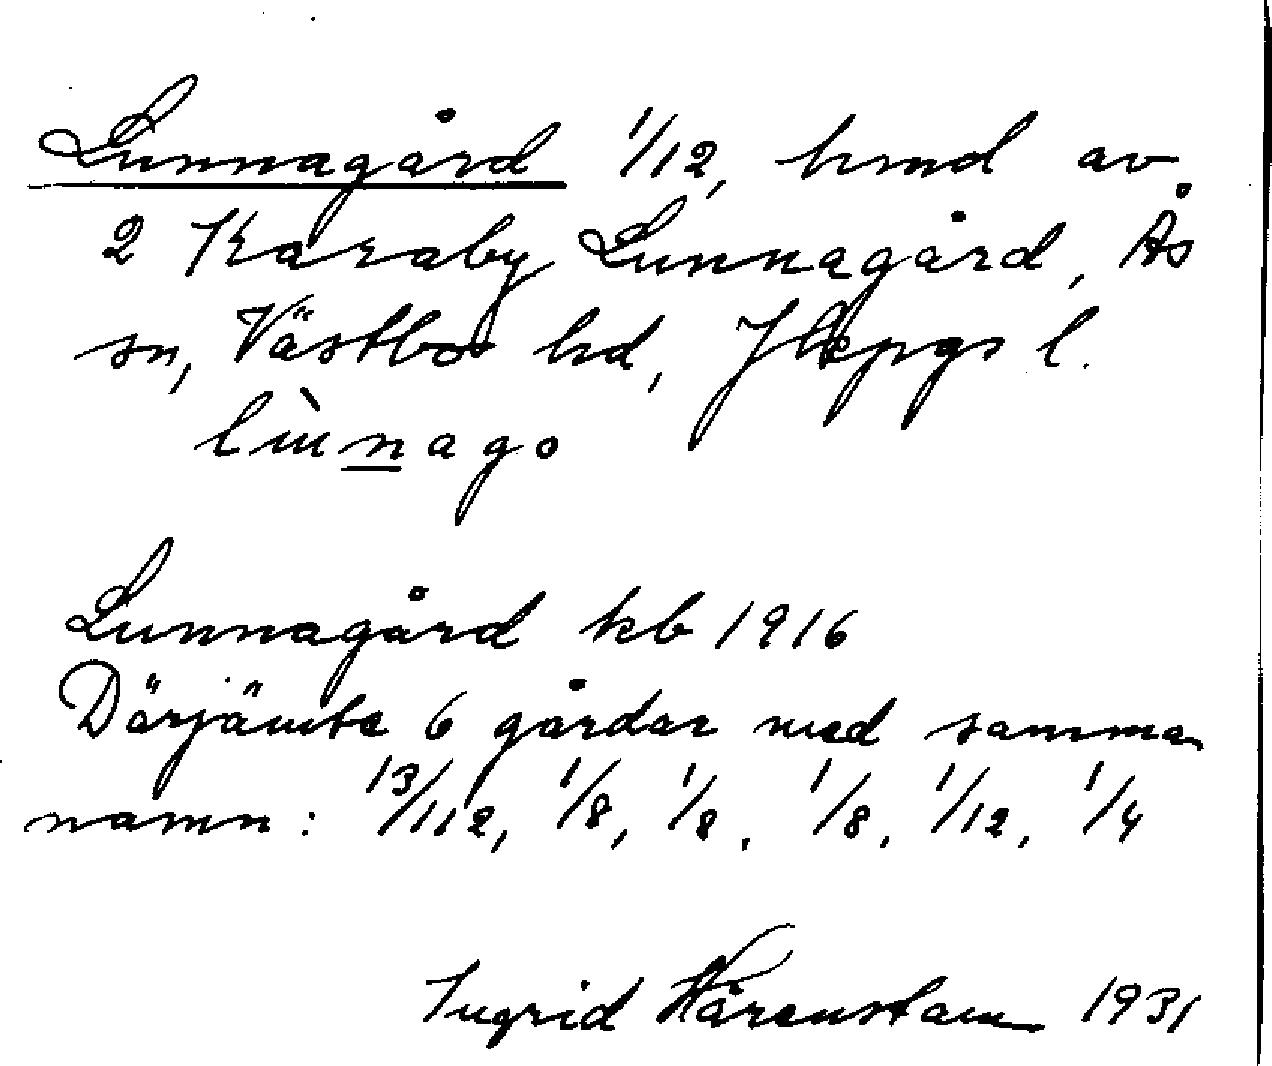 Lunnagård 1/12, hmd av
2 Karaby Lunnagård, Ås
sn, Västbo hd, Jkpgs l.
lùnnago
Lunnagård kb 1916
Därjämte 6 gårdar med samma
namn: 13/112, 1/8, 1/8, 1/8, 1/12, 1/4
Ingrid Härenstam 1931